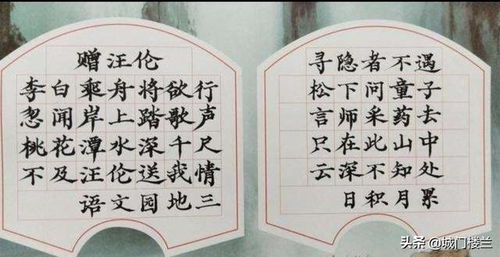 赠汪伦
李白乘舟将欲行
忽闻岸上踏歌声
桃花潭水深千尺
不及汪伦送我情
语文园地三
寻隐者不遇
松下问童子
言师采药去
只在此山中
云深不知处
日积月累
头条@城门楼兰